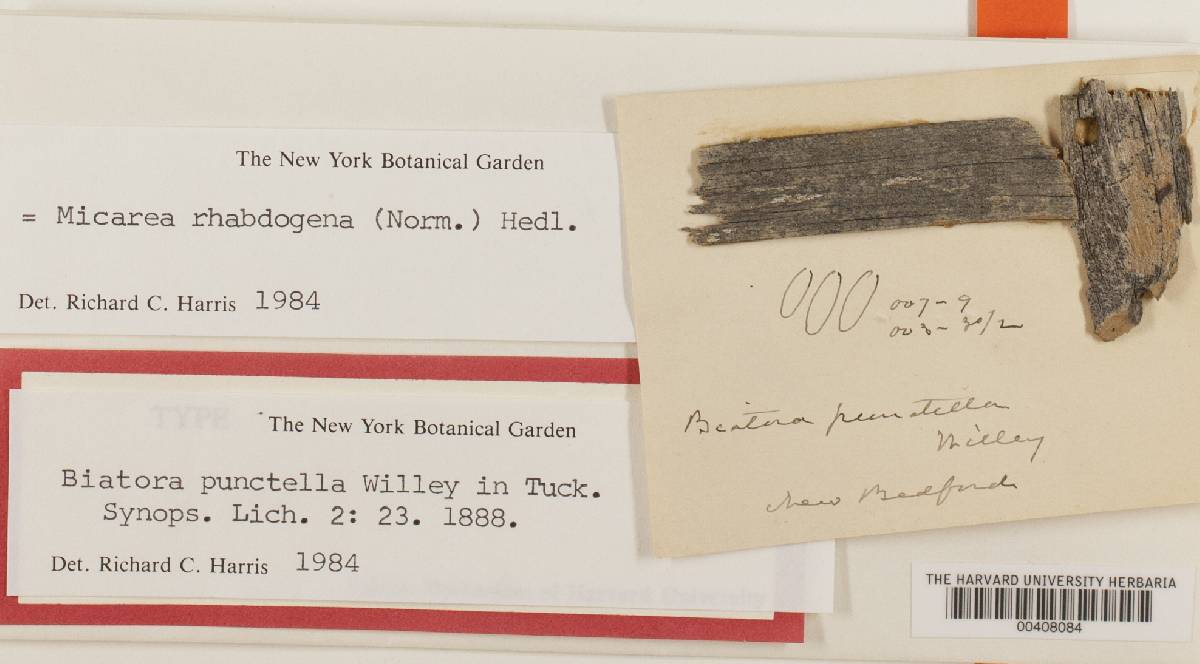 The New York Botanical Garden
= Micarea rhabdogena (Norm.) Hedl.
Det. Richard C. Harris 1984
TYPE
The New York Botanical Garden
Biatora punctella Willey in Tuck.
Synops. Lich. 2: 23. 1888.
Det. Richard C. Harris 1984
of Harvard University
007-9
003-3½
Biatora punctella
Willey
New Bedford
THE HARVARD UNIVERSITY HERBARIA
00408084